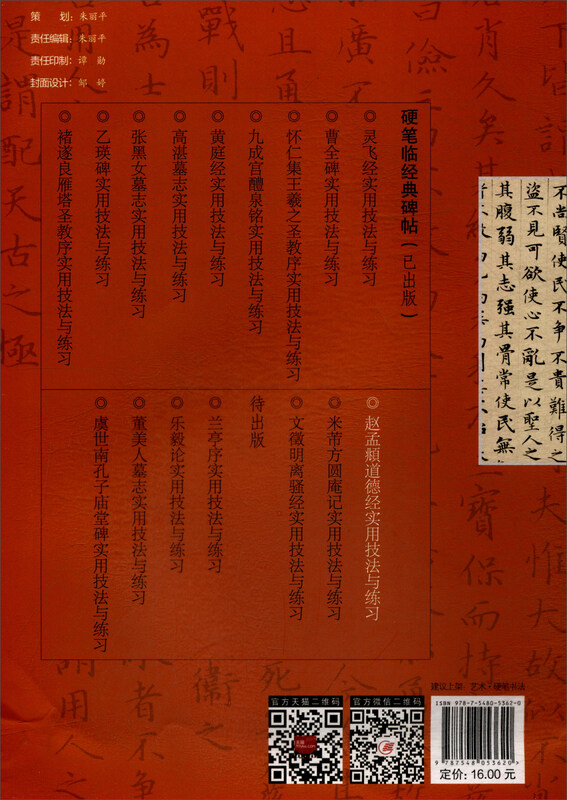 策 划：朱丽平
责任编辑：朱丽平
责任印制：谭 勋
封面设计：邹 婷
硬笔临经典碑帖（已出版）
◎灵飞经实用技法与练习
◎曹全碑实用技法与练习
◎怀仁集王羲之圣教序实用技法与练习
◎九成宫醴泉铭实用技法与练习
◎黄庭经实用技法与练习
◎高湛墓志实用技法与练习
◎张黑女墓志实用技法与练习
◎乙瑛碑实用技法与练习
◎褚遂良雁塔圣教序实用技法与练习
◎赵孟頫道德经实用技法与练习
◎米芾方圆庵记实用技法与练习
◎文徵明离骚经实用技法与练习
待出版
◎兰亭序实用技法与练习
◎乐毅论实用技法与练习
◎董美人墓志实用技法与练习
◎虞世南孔子庙堂碑实用技法与练习
不尚賢使民不争不貴難得之
盜不見可欲使心不亂是以聖人之
其腹弱其志强其骨常使民無
夫惟大故
寶保而持
者不争
謂用人之
是謂配天古之極
善為士
戰則
建议上架：艺术·硬笔书法
官方天猫二维码
官方微信二维码
ISBN 978-7-5480-5362-0
9 787548 053620 >
定价：16.00元